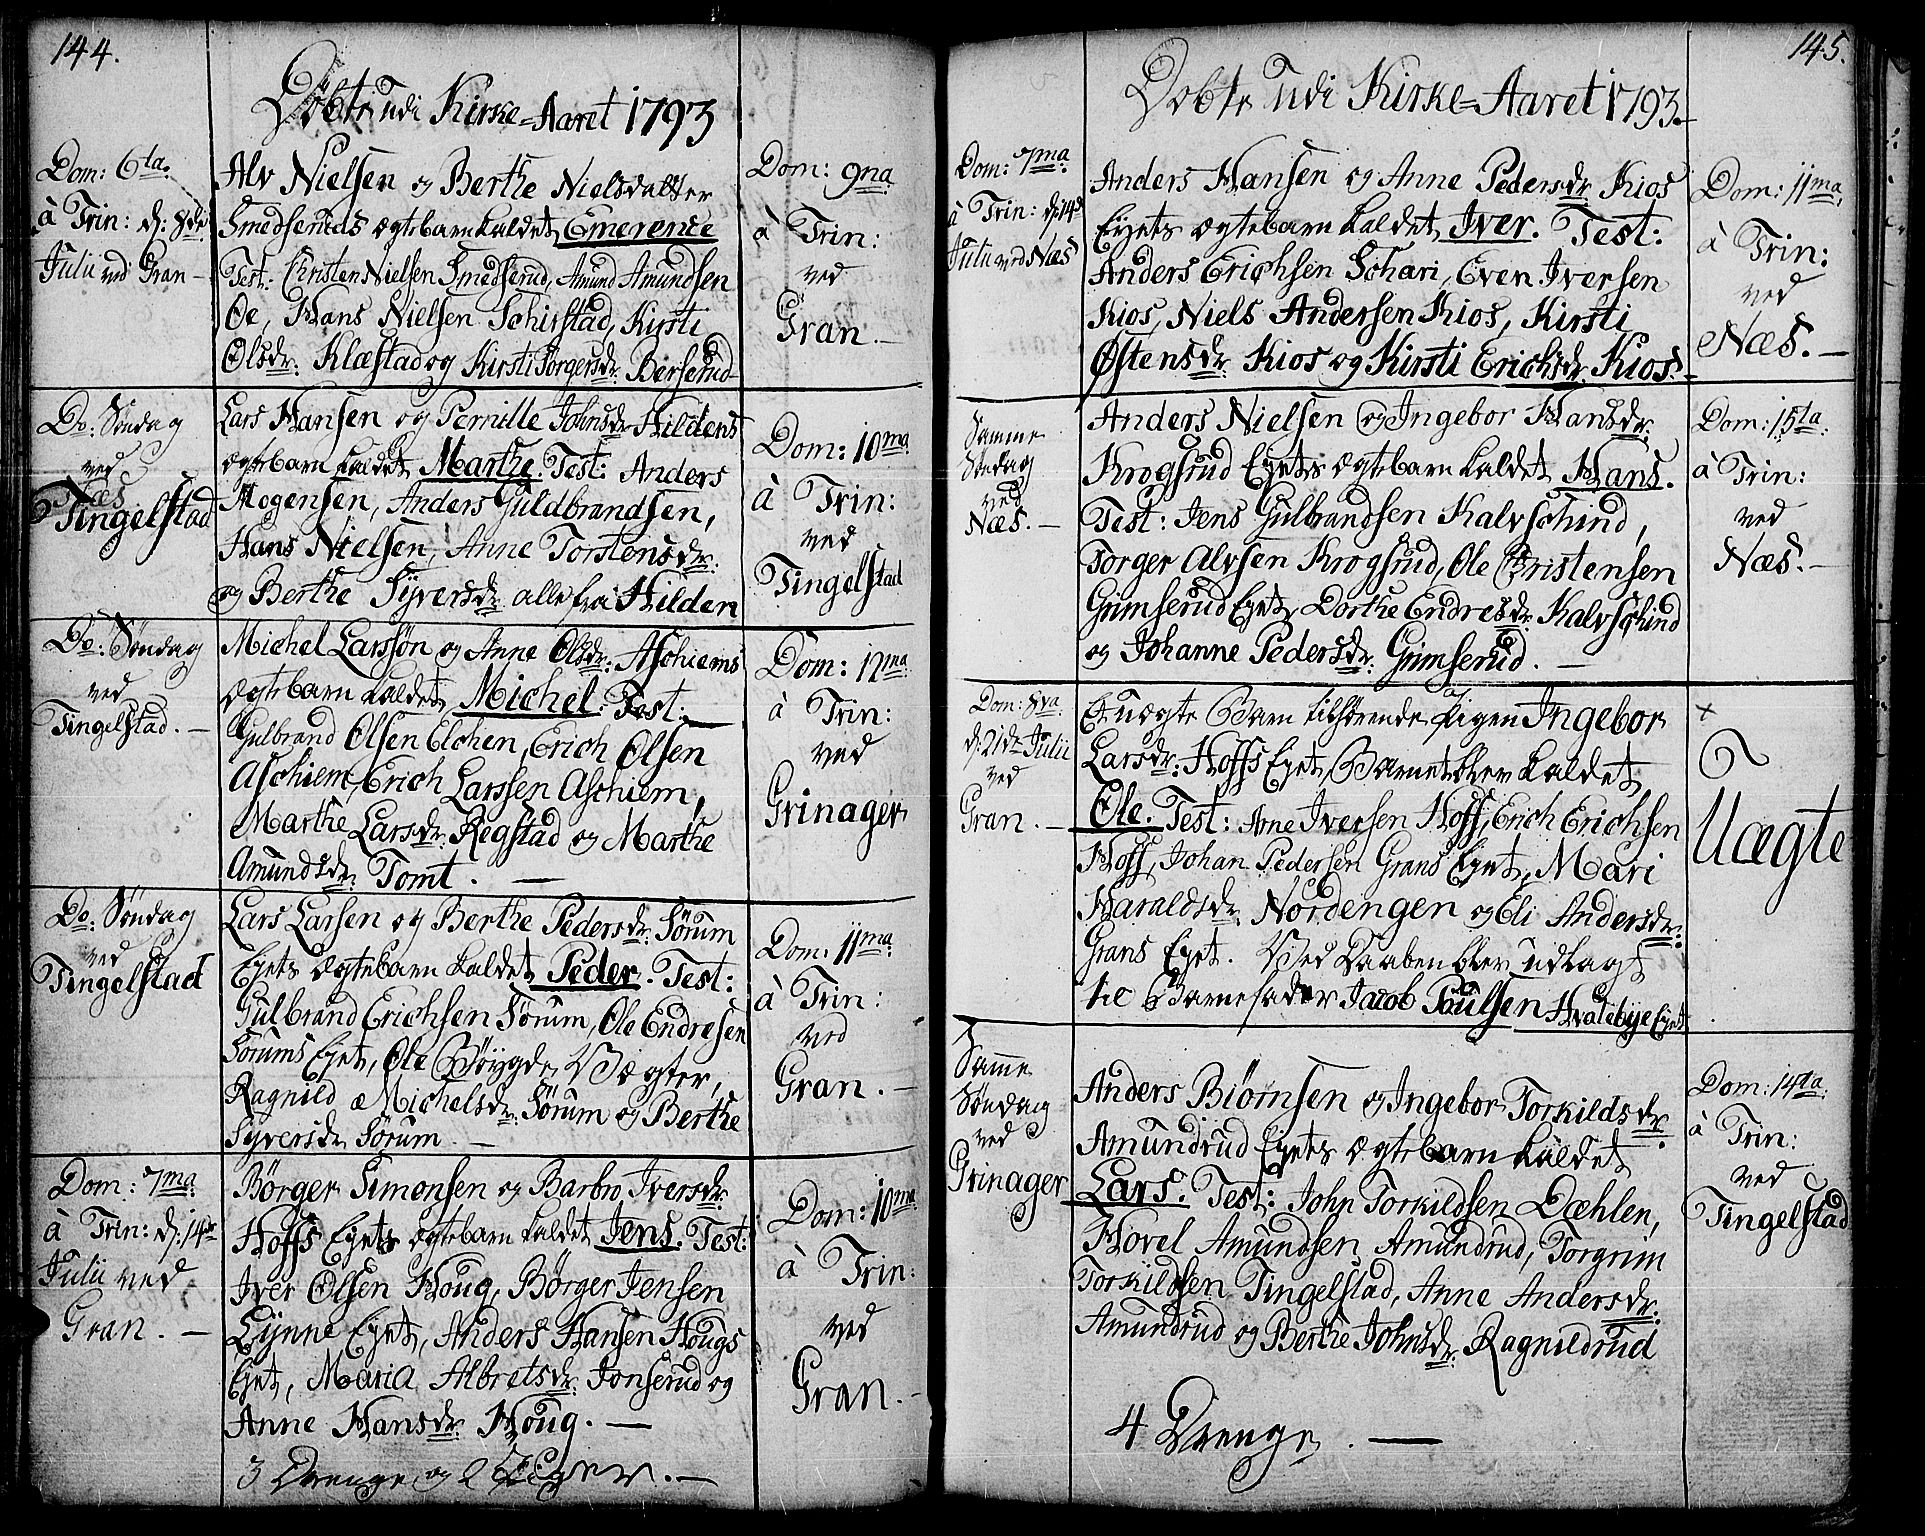 144.
Döbte udi Kirke=Aaret 1793
Dom: 6ta.
à Trin: d: 8de
Julii ved Gran –
Alv Nielsen og Berthe Nielsdatter
Smedseruds ægtebarn kaldet Emerence
Test: Christen Nielsen Smedserud, Amund Amundsen
Oe, Hans Nielsen Schirstad, Kirsti
Olsdr. Klæstad og Kirsti Torgersdr. Berserud
Dom: 9na
à Trin:
ved
Gran. –
Do: Söndag
ved
Næs
Tingelstad
Lars Hansen og Pernille Johnsdr Hildens
ægtebarn kaldet Marthe. Test: Anders
Mogensen, Anders Guldbrandsen,
Hans Nielsen, Anne Torstensdr.
og Berthe Syversdr. alle fra Hilden
Dom: 10ma
à Trin:
ved
Tingelstad
Do: Söndag
ved
Tingelstad. –
Michel Larssøn og Anne Olsdr: Aschiems
ægtebarn kaldet Michel. Test:
Gulbrand Olsen Elchen, Erich Olsen
Aschiem, Erich Larssen Aschiem,
Marthe Larsdr. Regstad og Marthe
Amundsdr. Tomt. –
Dom: 12ma
à Trin:
ved
Grinager
Do: Söndag
ved
Tingelstad
Lars Larsen og Berthe Pedersdr: Sørum
Eyets ægtebarn kaldet Peder. Test:
Gulbrand Erichsen Sørum, Ole Endresen
Sørums Eyet, Ole Böygde Vægter,
Ragnild Michelsdr. Sørum og Berthe
Syversdr Sørum. –
Dom: 11ma
à Trin:
ved
Gran. –
Dom: 7ma
à Trin: d: 14de
Julii ved
Gran. –
Börger Simonsen og Barbro Iversdr.
Hoffs Eyets ægtebarn kaldet Jens. Test:
Iver Olsen Houg, Börger Jensen
Lynne Eyet, Anders Hansen Hougs
Eyet, Maria Albretsdr. Jonserud og
Anne Hansdr. Houg. –
3 Drenge og 2 Piger. –
Dom: 10ma
à Trin:
ved
Gran. –
145.
Döbte udi Kirke=Aaret 1793.
Dom: 7ma
à Trin: d: 14de
Julii ved Næs
Anders Hansen og Anne Pedersdr Kios
Eyets ægtebarn kaldet Iver. Test:
Anders Erichsen Schari, Even Iversen
Kios, Niels Andersen Kios, Kirsti
Østensdr. Kios og Kirsti Erichsdr. Kios. –
Dom: 11ma.
à Trin:
ved
Næs. –
Samme
Söndag
ved
Næs. –
Anders Nielsen og Ingebor Hansdr.
Krogsrud Eyets ægtebarn kaldet Hans.
Test: Jens Gulbrandsen Kalvschind,
Torger Alvsen Krogsrud, Ole Christensen
Grimserud Eyet, Dorthe Endresdr. Kalvschind
og Johanne Pedersdr. Grimserud. –
Dom: 15ta.
à Trin:
ved
Næs. –
Dom: 8va
d: 21de Julii
ved
Gran. –
Et uægte Barn tilhörende Pigen Ingebor
Larsdr: Hoffs Eyet, Barnet blev kaldet
Ole. Test: Arne Iversen Hoff, Erich Erichsen
Hoff, Johan Pedersen Grans Eyet, Mari
Haraldsdr. Nordengen og Eli Andersdr:
Grans Eyet. Ved Daaben blev udlagt
til Barnefader Jacob Poulsen Hvalebye Eyet
Uægte
Samme
Söndag
ved
Grinager
Anders Biörnsen og Ingebor Torkildsdr.
Amundrud Eyets ægtebarn kaldet
Lars. Test: John Torkildsen Dæhlen,
Hovel Amundsen Amundrud, Torgrim
Torkildsen Tingelstad, Anne Andersdr.
Amundrud og Berthe Johnsdr. Ragnildrud
Dom: 14ta.
à Trin:
ved
Tingelstad
4 Drenge. –